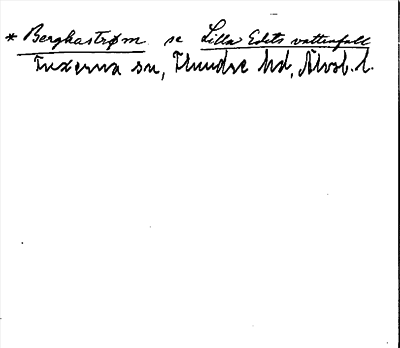 * Berghaström se Lilla Edets vattenfall
Fuxerna sn, Flundre hd, Älvsb. l.